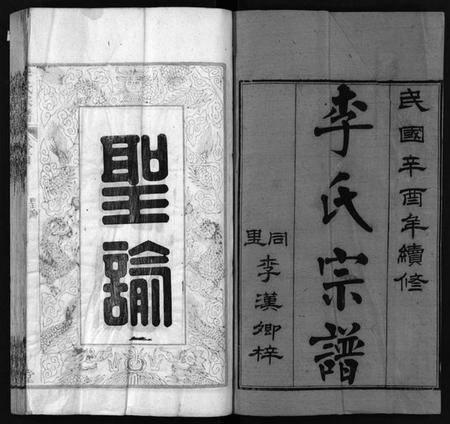 民國辛酉年續修
李氏宗譜
同里李漢卿梓
聖諭
一